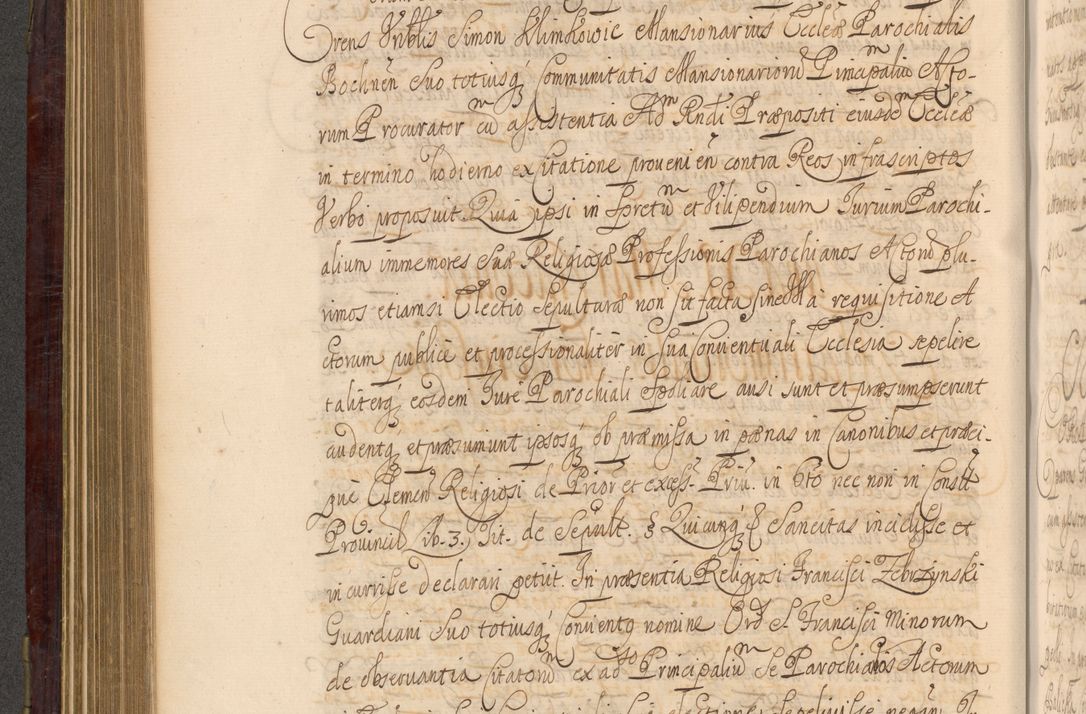 Drens Vnblis Simon Klimkowic Mansionarius Eccleæ Parochialis
Bochnen̄ Suo totiusq́ Communitatis Mansionariorū Principaliū Acto-
rum Procurator cū assistentia Adm Rndi Præpositi eiusdē Eccleæ
in termino hodierno ex Citatione provenien̄ contra Reos infrascriptos
Verbo proposuit. Quia ipsi in Spretū et Vilipendium Jurium Parochi-
alium immemores Suæ Religiosæ Professionis Parochianos Actorū plu-
rimos etiamsi Electio Sepulturæ non sit facta sine Vlla requisitione A
ctorum publicè et processionaliter in Sua Conventuali Ecclesia sepelire
taliterq́ eosdem Jure Parochiali Spoliare ausi sunt et præsumpserunt
audentq́ et præsumunt ipsosq́ ob præmissa in pœnas in Canonibus et præci-
puè Clemen̄ Religiosi de Prior et excess. Priu. in 6to nec non in Constt
Provincil Lib. 3. Tit. de Sepult. § Quicunq́ Sancitas incidisse et
incurrisse declarari petiit. In præsentia Religiosi Francisci Zebrzynski
Guardiani Suo totiusq́ Conventq nomine Ord S. Francisci Minorum
de observantia Citatorū ex adto Principaliū Se Parochianos Actorum